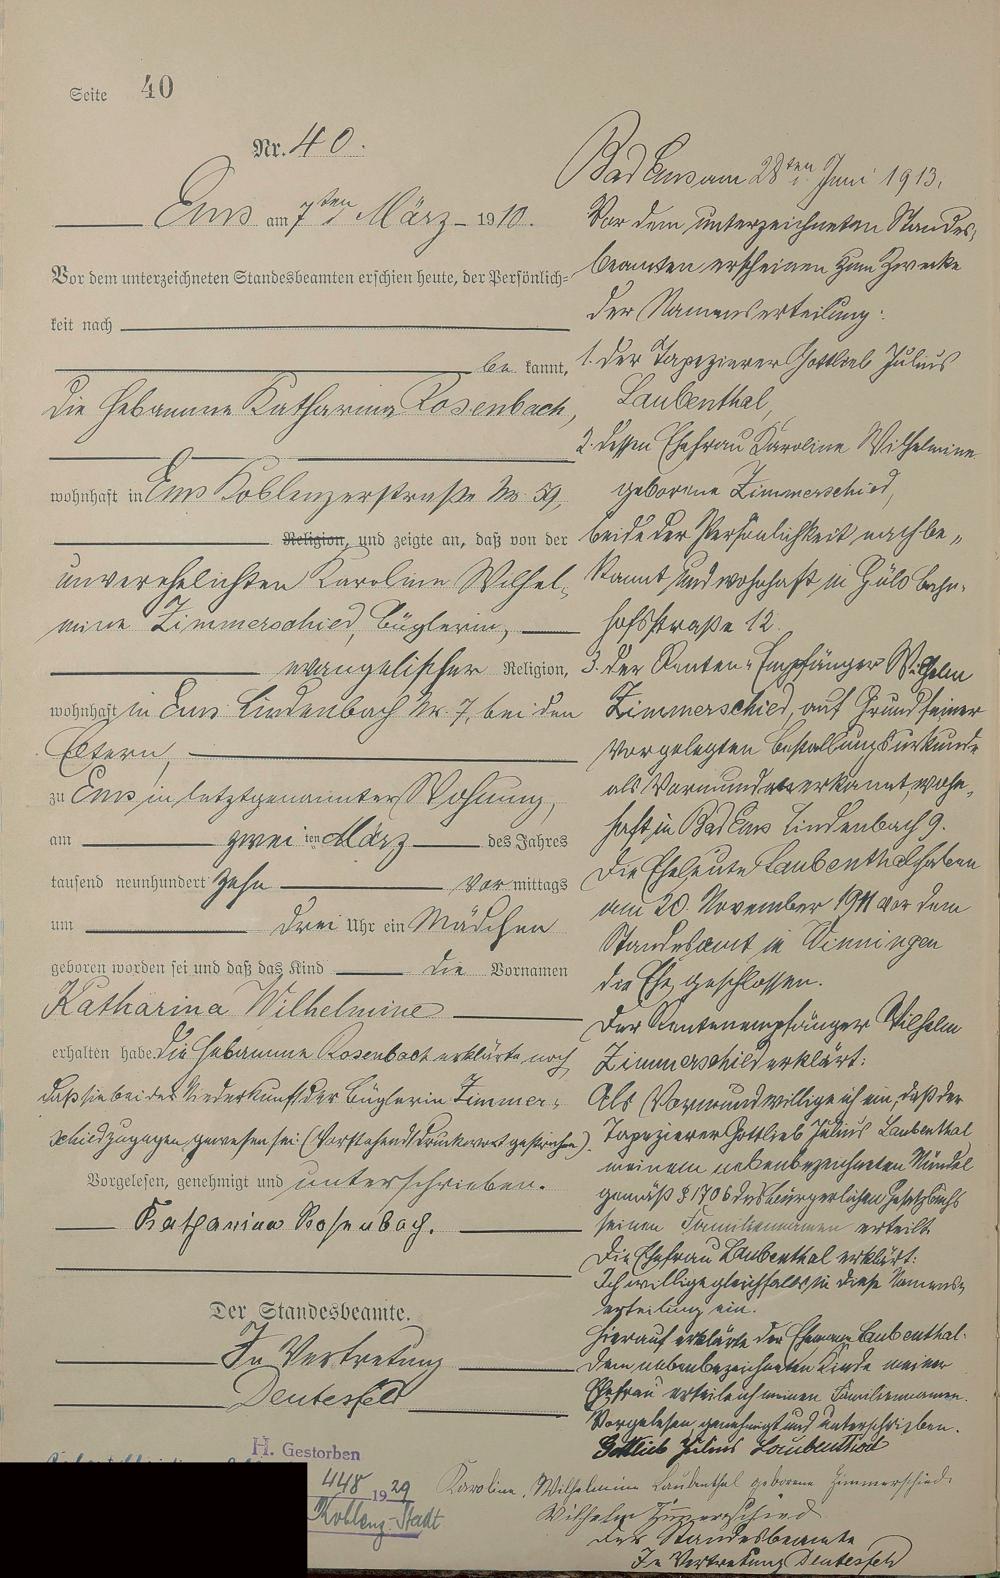 Seite 40
Nr. 40.
Ems am 7ten März 1910.
Vor dem unterzeichneten Standesbeamten erschien heute, der Persönlich-
keit nach
be kannt,
die Hebamme Katharina Rosenbach,
wohnhaft in Ems Koblenzerstraße Nr. 59,
Religion, und zeigte an, daß von der
unverehelichten Karoline Wilhel-
mine Zimmerschied, Büglerin,
evangelischer Religion,
wohnhaft in Ems Lindenbach Nr. 7, bei den
Eltern,
zu Ems in letztgenannter Wohnung,
am zwei ten März des Jahres
tausend neunhundert zehn Vor mittags
um drei Uhr ein Mädchen
geboren worden sei und daß das Kind die Vornamen
Katharina Wilhelmine
erhalten habe. Die Hebamme Rosenbach erklärte noch,
daß sie bei der Niederkunft der Büglerin Zimmer-
schied zugegen gewesen sei. (Vorstehend 1 Druckwort gestrichen).
Vorgelesen, genehmigt und unterschrieben.
Katharina Rosenbach.
Der Standesbeamte.
In Vertretung
Deutesfeld
H. Gestorben
448 1929
Koblenz-Stadt
Bad Ems am 28ten Juni 1913.
Vor dem unterzeichneten Standes-
beamten erscheinen zum Zwecke
der Namenserteilung:
1. der Tapezierer Gottlieb Julius
Laubenthal,
2. dessen Ehefrau Karoline Wilhelmine
geborene Zimmerschied,
beide der Persönlichkeit nach be-
kannt und wohnhaft in Güls Bahn-
hofsstraße 12.
3. der Renten-Empfänger Wilhelm
Zimmerschied, auf Grund seiner
vorgelegten Bestallungsurkunde
als Vormund anerkannt, wohn-
haft in Bad Ems Lindenbach 9.
Die Eheleute Laubenthal haben
am 20. November 1911 vor dem
Standesamt in Winningen
die Ehe geschlossen.
Der Rentenempfänger Wilhelm
Zimmerschied erklärt:
Als Vormund willige ich ein, daß der
Tapezierer Gottlieb Julius Laubenthal
meinem nebenbezeichneten Mündel
gemäß § 1706 des Bürgerlichen Gesetzbuchs
seinen Familiennamen erteilt.
Die Ehefrau Laubenthal erklärt:
Ich willige gleichfalls in diese Namens-
erteilung ein.
Hierauf erklärte der Ehemann Laubenthal:
Dem nebenbezeichneten Kinde meiner
Ehefrau erteile ich meinen Familiennamen.
Vorgelesen genehmigt und unterschrieben.
Gottlieb Julius Laubenthal
Karoline Wilhelmine Laubenthal geborene Zimmerschied.
Wilhelm Zimmerschied
Der Standesbeamte
In Vertretung Deutesfeld